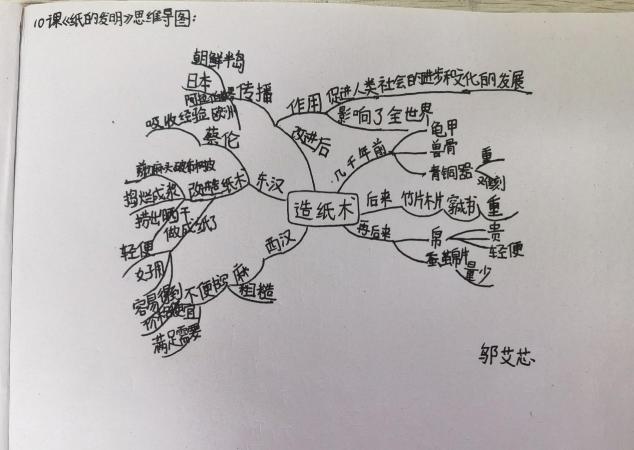 10课《纸的发明》思维导图：
造纸术
几千年前
龟甲
兽骨
青铜器
重
难刻
后来
竹片木片
穿成书
重
再后来
帛
贵
轻便
蚕茧绵片
量少
西汉
麻
不便
粗糙
东汉
蔡伦
吸收经验
改进造纸术
捣烂成浆
捞出晒干
做成纸了
轻便
好用
容易得到
价格便宜
满足需要
改进后
传播
朝鲜半岛
日本
阿拉伯
欧洲
作用
促进人类社会的进步和文化的发展
影响了全世界
邬艾芯